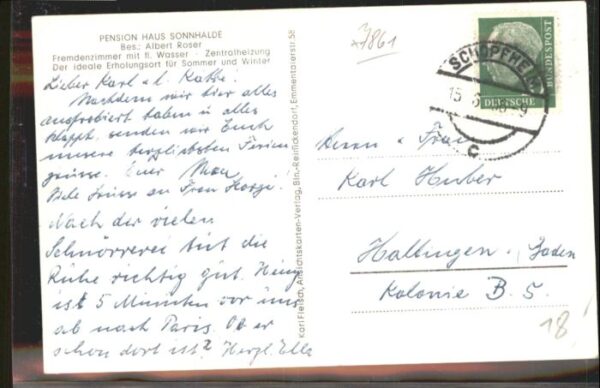 PENSION HAUS SONNHALDE
Bes.: Albert Roser
Fremdenzimmer mit fl. Wasser - Zentralheizung
Der ideale Erholungsort für Sommer und Winter
Lieber Karl u. l. Käthe.
Nachdem wir hier alles
ausprobiert haben u. alles
klappt, senden wir Euch
unsere herzlichsten Ferien
grüsse. Euer Max
Viele Grüsse an Frau
Nach der vielen
Schnörrerei tut die
Ruhe richtig gut. Heinz
ist 5 Minuten vor uns
ab nach Paris. Ob er
schon dort ist? Herzl. Ella
Karl Fleisch, Ansichtskarten-Verlag, Bln-Reinickendorf, Emmentalerstr. 58
7861
SCHOPFHEIM
15.
c
DEUTSCHE
BUNDESPOST
Herrn u. Frau
Karl Huber
Haltingen, Baden
Kolonie B. 5.
18